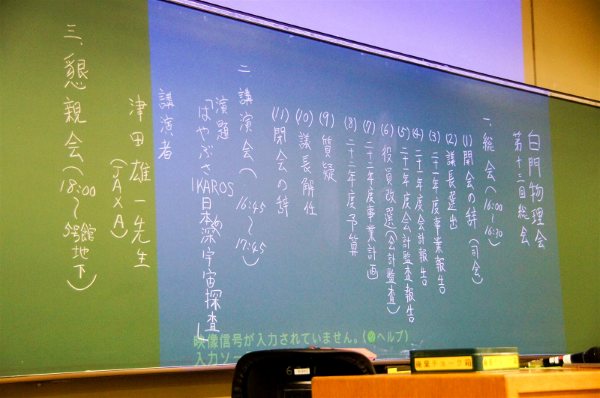 白門物理会
第十三回総会
一、総会(16:00〜16:30)
(1)開会の辞(司会)
(2)議長選出
(3)二十一年度事業報告
(4)二十一年度会計報告
(5)二十一年度会計監査報告
(6)役員改選(会計監査)
(7)二十二年度事業計画
(8)二十二年度予算
(9)質疑
(10)議長解任
(11)閉会の辞
二 講演会(16:45〜17:45)
演題
「はやぶさ
IKAROS
日本の深宇宙探査」
講演者
津田雄一先生
(JAXA)
三、懇親会(18:00〜5号館地下)
映像信号が入力されていません。(ヘルプ)
入力ソ
6